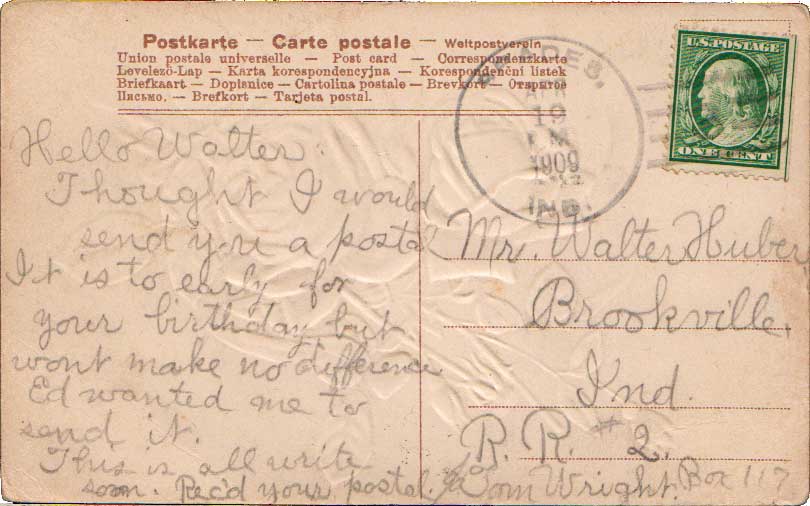 Postkarte — Carte postale — Weltpostverein
Union postale universelle — Post card — Correspondenzkarte
Levelezö-Lap — Karta korespondencyjna — Korespondenční lístek
Briefkaart — Dopisnice — Cartolina postale — Brevkort — Открытое
Письмо. — Brefkort — Tarjeta postal.
19
PM
1909
IND.
U.S. POSTAGE
ONE CENT
Hello Walter.
Thought I would
send you a postal
It is to early for
your birthday but
wont make no difference
Ed wanted me to
send it.
This is all write
soon. Rec'd your postal.
Mr. Walter Huber
Brookville,
Ind.
R. R. # 2.
Wright. Box 117